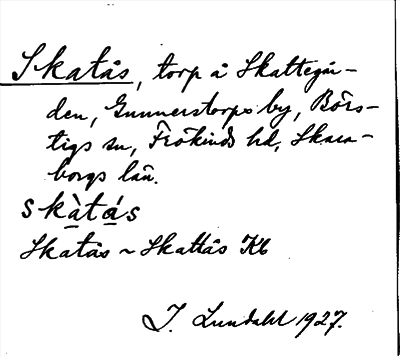 Skatås, torp å Skattegår-
den, Gunnerstorps by, Börs-
tigs sn, Frökinds hd, Skara-
borgs län.
skàtás
Skatås ~ Skattås Kb
I. Lundahl 1927.